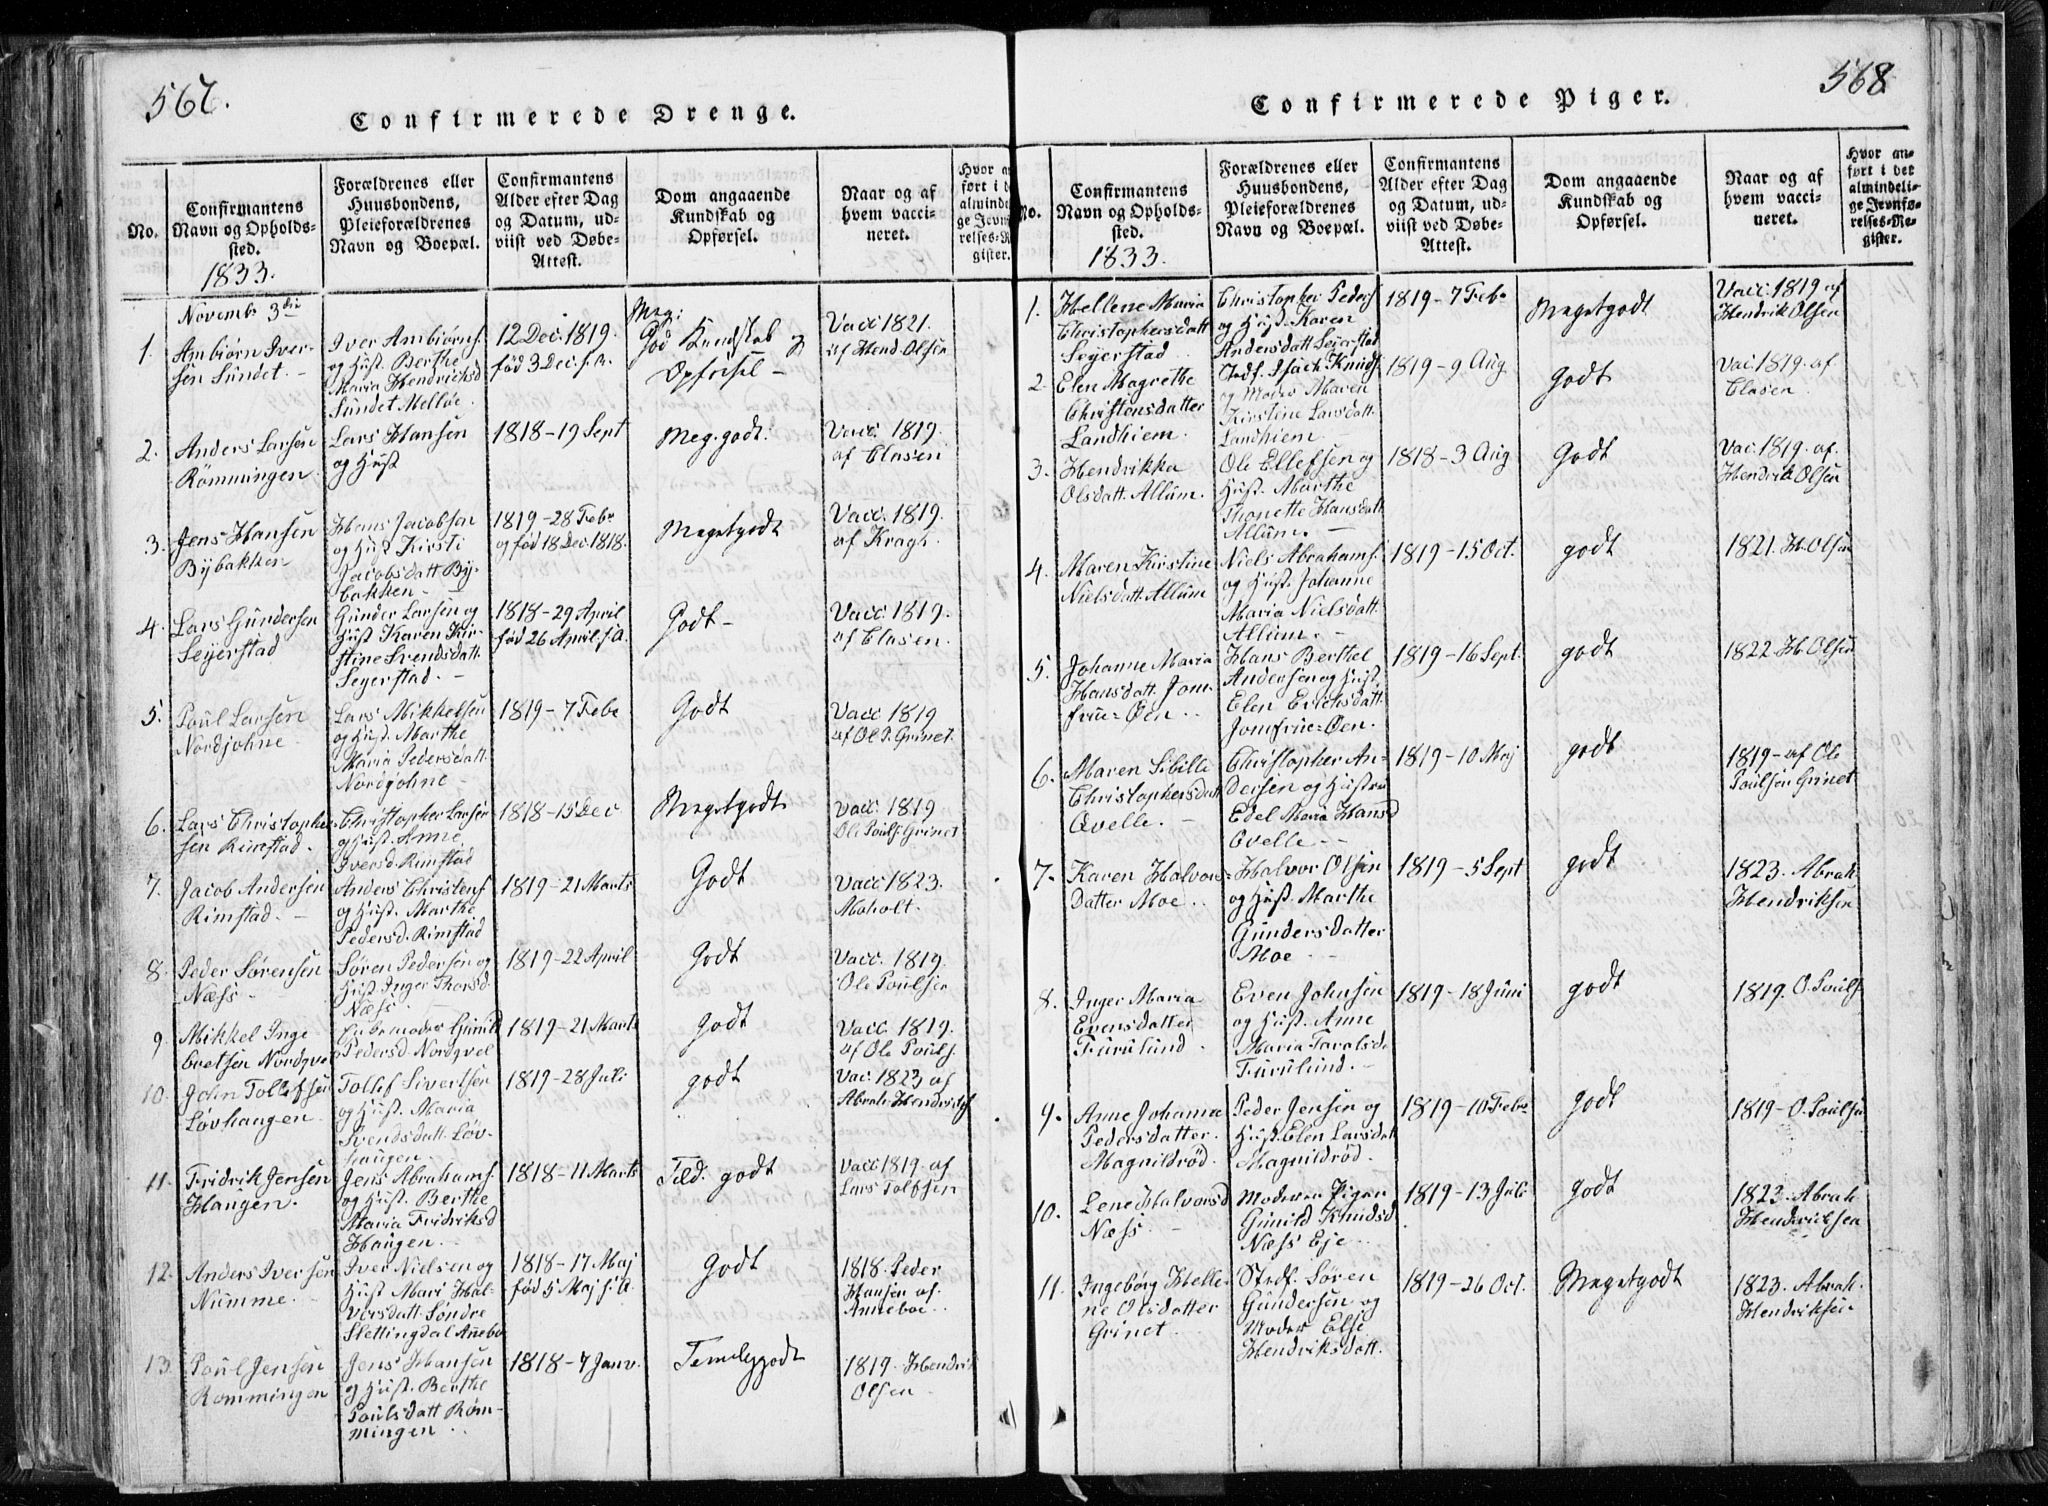 567.
Confirmerede Drenge.
No.
Confirmantens
Navn og Opholds-
sted.
1833.
Forældrenes eller
Huusbondens,
Pleieforældrenes
Navn og Boepæl.
Confirmantens
Alder efter Dag
og Datum, ud-
viist ved Døbe-
Attest.
Dom angaaende
Kundskab og
Opførsel.
Naar og af
hvem vacci-
neret.
Novembr 3die
1.
Ambiørn Iver-
sen Sundet. -
Iver Ambiørns.
og Hust. Berthe
Maria Hendrichsd
Sundet Melløe.
12 Dec. 1819.
fød 3 Dec. s. A.
Meg:
God Kundskab og
Opførsel -
Vacc 1821.
af Hend. Olsen
2.
Anders Larsen
Römmingen.
Lars Hansen
og Hust
1818-19 Sept
Meg. godt.
Vacc. 1819.
af Clasen
3.
Jens Hansen
Bybakken
Hans Jacobsen
og Hust Kirsti
Jacobsdatt By-
bakken -
1819-28 Febr
og fød 18 Dec. 1818.
Megetgodt
Vacc. 1819.
af Kragh.
4.
Lars Gundersen
Seyerstad
Gunder Larsen og
Hust Karen Kir-
stine Svendsdatt.
Seyerstad. -
1818-29 April
fød 26 April s. A.
Godt -
Vacc 1819.
af Clasen.
5.
Poul Larsen
Nordjohne.
Lars Mikkelsen
og Hust. Marthe
Maria Pedersdatt.
Nordgohne -
1819-7 Febr
Godt
Vacc 1819
af Ol P. Grinet.
6.
Lars Christopher
sen Rimstad.
Christopher Larsen
og Hust. Anne
Iversd. Rimstad
1818-15 Dec
Megetgodt
Vacc. 1819
Ole Pouls. Grinet
7.
Jacob Andersen
Rimstad. -
Anders Christens
og Hust. Marthe
Pedersd. Rimstad
1819-21 Marts
Godt
Vacc 1823.
Moholt.
8.
Peder Sörensen
Næss -
Sören Pedersen og
Hust Inger Thorsd.
Næss -
1819-22 April
Godt
Vacc. 1819.
Ole Poulsen
9.
Mikkel Inge
bretsen Nordqve
Pedersd Nordqvel
1819-21 Marts
Godt
Vacc. 1819.
af Ole Pouls.
10.
John Tollefsen
Løvhaugen
Tollef Sivertsen
og Hust. Maria
Svendsdatt. Løv-
haugen.
1819-28 Juli
godt
Vac. 1823 af
Abrah. Hendriks
11.
Fridrik Jensen
Haugen.
Jens Abrahams.
og Hust. Berthe
Maria Fridriksd
Haugen. -
1818-11 Marts
Tild. godt
Vacc 1819. af
Lars Tolfsen
12.
Anders Iversen
Numme. -
Iver Nielsen og
Hust Mari Hal-
vorsdatt. Söndre
Slettingdal Anebo
1818-17 Maj
fød 5 Maj s. A.
Godt
1818. Peder
Hansen af.
Anneboe.
13.
Poul Jensen
Rommingen
Jens Hansen
og Hust. Berthe
Poulsdatt Røm-
mingen
1818-7 Janv.
Temeliggodt
1819. Hendrik
Olsen -
568
Confirmerede Piger.
No.
Confirmantens
Navn og Opholds-
sted.
1833.
Forældrenes eller
Huusbondens,
Pleieforældrenes
Navn og Boepæl.
Confirmantens
Alder efter Dag
og Datum, ud-
viist ved Døbe-
Attest.
Dom angaaende
Kundskab og
Opførsel.
Naar og af
hvem vacci-
neret.
Hvor an-
ført i det
almindeli-
ge Jevnfø-
relses-Re-
gister.
1.
Hellene Maria
Christophersdatt
Seyerstad
Christopher Peders
og Hust. Karen
Andersdatt Seierstad
1819-7 Febr
Megetgodt
Vacc. 1819 af
Hendrik Olsen
2.
Elen Magrethe
Christensdatter
Landhiem.
Stedf. Isach Knuds.
og Moder Maren
Kirstine Larsdatt.
Landhiem -
1819-9 Aug.
Godt
Vac. 1819. af.
Clasen
3.
Hendrikka
Olsdatt. Allum.
Ole Ellefsen og
Hust. Marthe
Thonette Hansdatt
Allum.
1818-3 Aug
Godt
Vac. 1819. af.
Hendrik Olsen
4.
Maren Kirstine
Nielsdatt. Allum
Niels Abrahams.
og Hust. Johanne
Maria Nielsdatt.
Allum. -
1819-15 Oct.
godt
1821. H. Olsen
5.
Johanne Maria
Hansdatt. Jom-
frue-Øen.
Hans Berthel
Andersen og Hust.
Elen Erichsdatt
Jomfrue-Øen.
1819-16 Sept.
godt
1822. H. Olsen
6.
Maren Sibille
Christophersdatt
Qvelle. -
Christopher An-
dersen og Hustru
Edel Maria Hansd
Qvelle -
1819-10 Maj
godt
1819-af Ole
Poulsen Grinet
7.
Karen Halvors-
datter Moe.
Halvor Olsen
og Hust. Marthe
Gundersdatter
Moe -
1819-5 Sept
godt
1823. Abrah.
Hendriksen
8.
Inger Maria
Evensdatter
Furulund.
Even Johnsen
og Hust. Anne
Maria Taralsd.
Furulund. -
1819-18 Juni
godt
1819. O. Pouls
9.
Anne Johanne
Pedersdatter
Magnildröd.
Peder Jensen og
Hust. Elen Larsdatt
Magnildröd.
1819-10 Febr
Godt
1819-O. Poulsen
10.
Lene Halvorsd
Næss. -
Moderen Pigen
Gunild Knudsd
Næss Eje.
1819-13 Juli
Godt
1823. Abrah.
Hendriksen
11.
Ingeborg Helle-
ne Olsdatter
Grinet
Stedf. Sören
Gundersen og
Moder Else
Hendriksdatt.
1819-26 Oct.
Megetgodt
1823. Abrah.
Hendriksen.